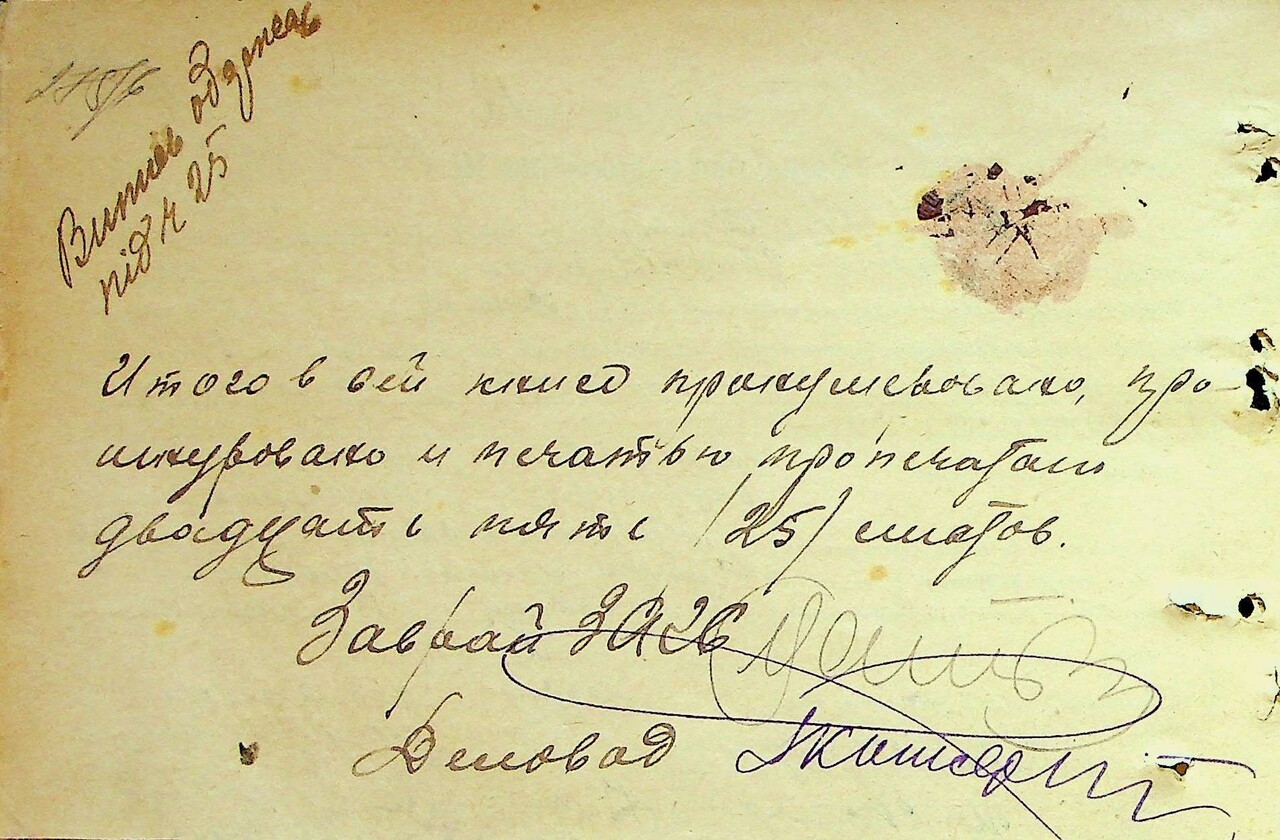 Витяг одержав
під ч 25
Итого в сей книге пронумеровано, про-
шнуровано и печатью пропечатано
двадцать пять /25/ листов.
Заврай ЗАГС
Деловод